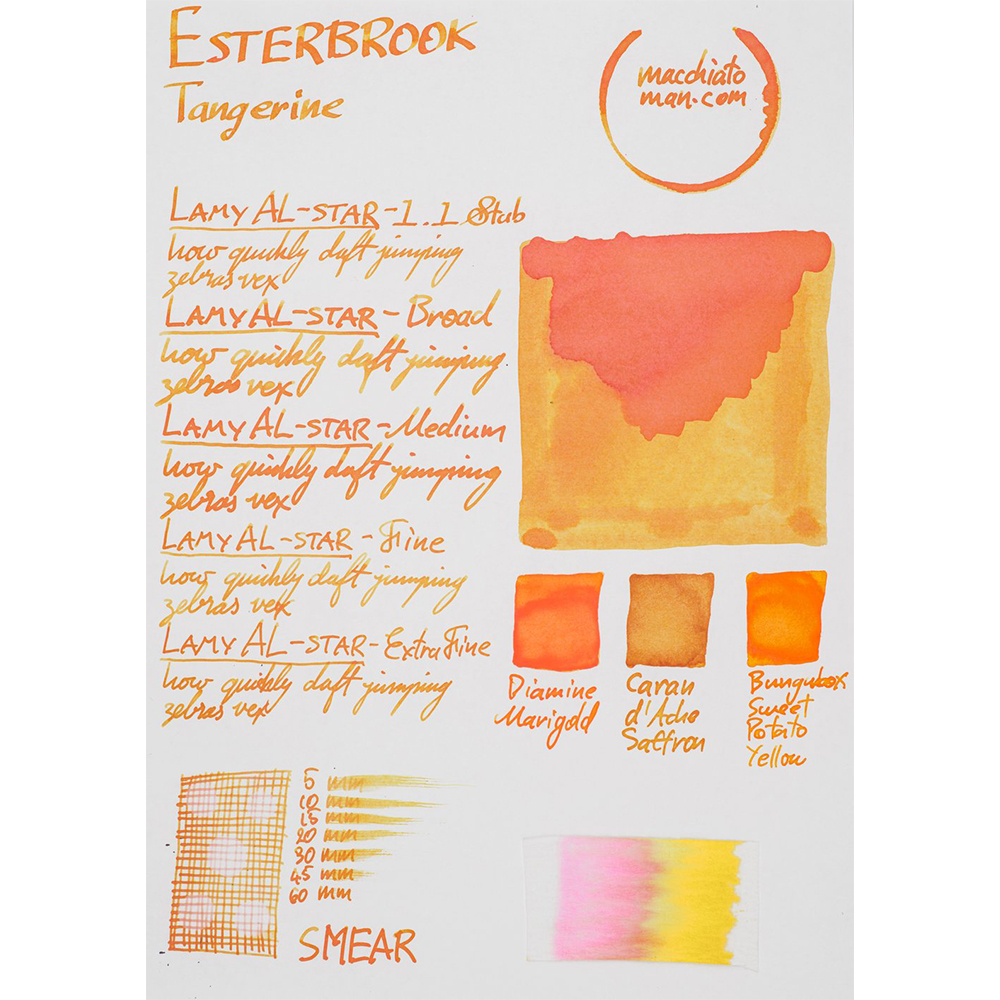 ESTERBROOK
Tangerine
macchiato
man.com
LAMY AL-STAR-1.1 Stub
how quickly daft jumping
zebras vex
LAMY AL-STAR - Broad
how quickly daft jumping
zebras vex
LAMY AL-STAR - Medium
how quickly daft jumping
zebras vex
LAMY AL-STAR - Fine
how quickly daft jumping
zebras vex
LAMY AL-STAR - Extra Fine
how quickly daft jumping
zebras vex
Diamine
Marigold
Caran
d'Ache
Saffron
Bungubox
Sweet
Potato
Yellow
5 mm
10 mm
15 mm
20 mm
30 mm
45 mm
60 mm
SMEAR